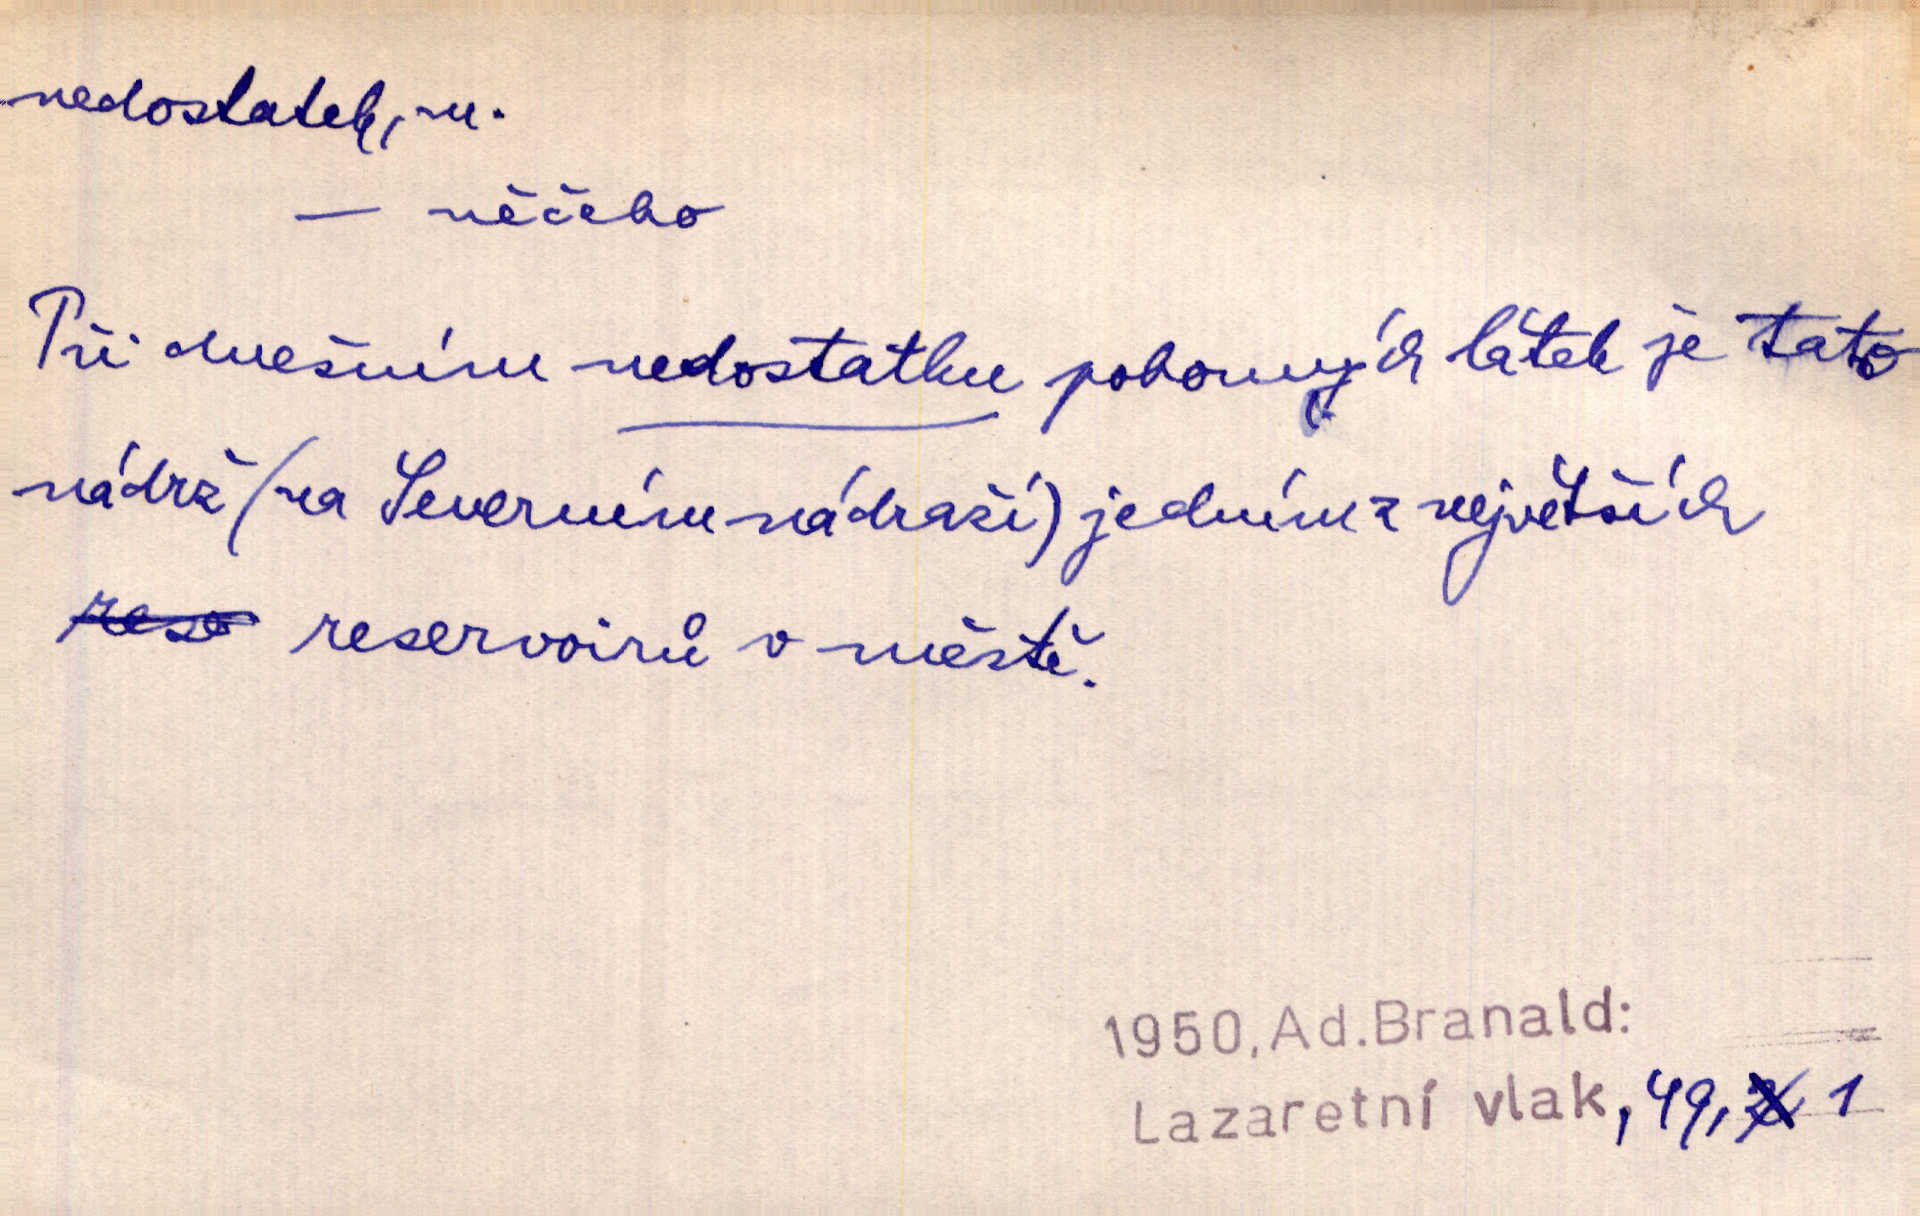 nedostatek, m.
— něčeho
Při dnešním nedostatku pohonných látek je tato
nádrž (na Severním nádraží) jedním z největších
rese reservoirů v městě.
1950, Ad. Branald:
Lazaretní vlak, 49, 1